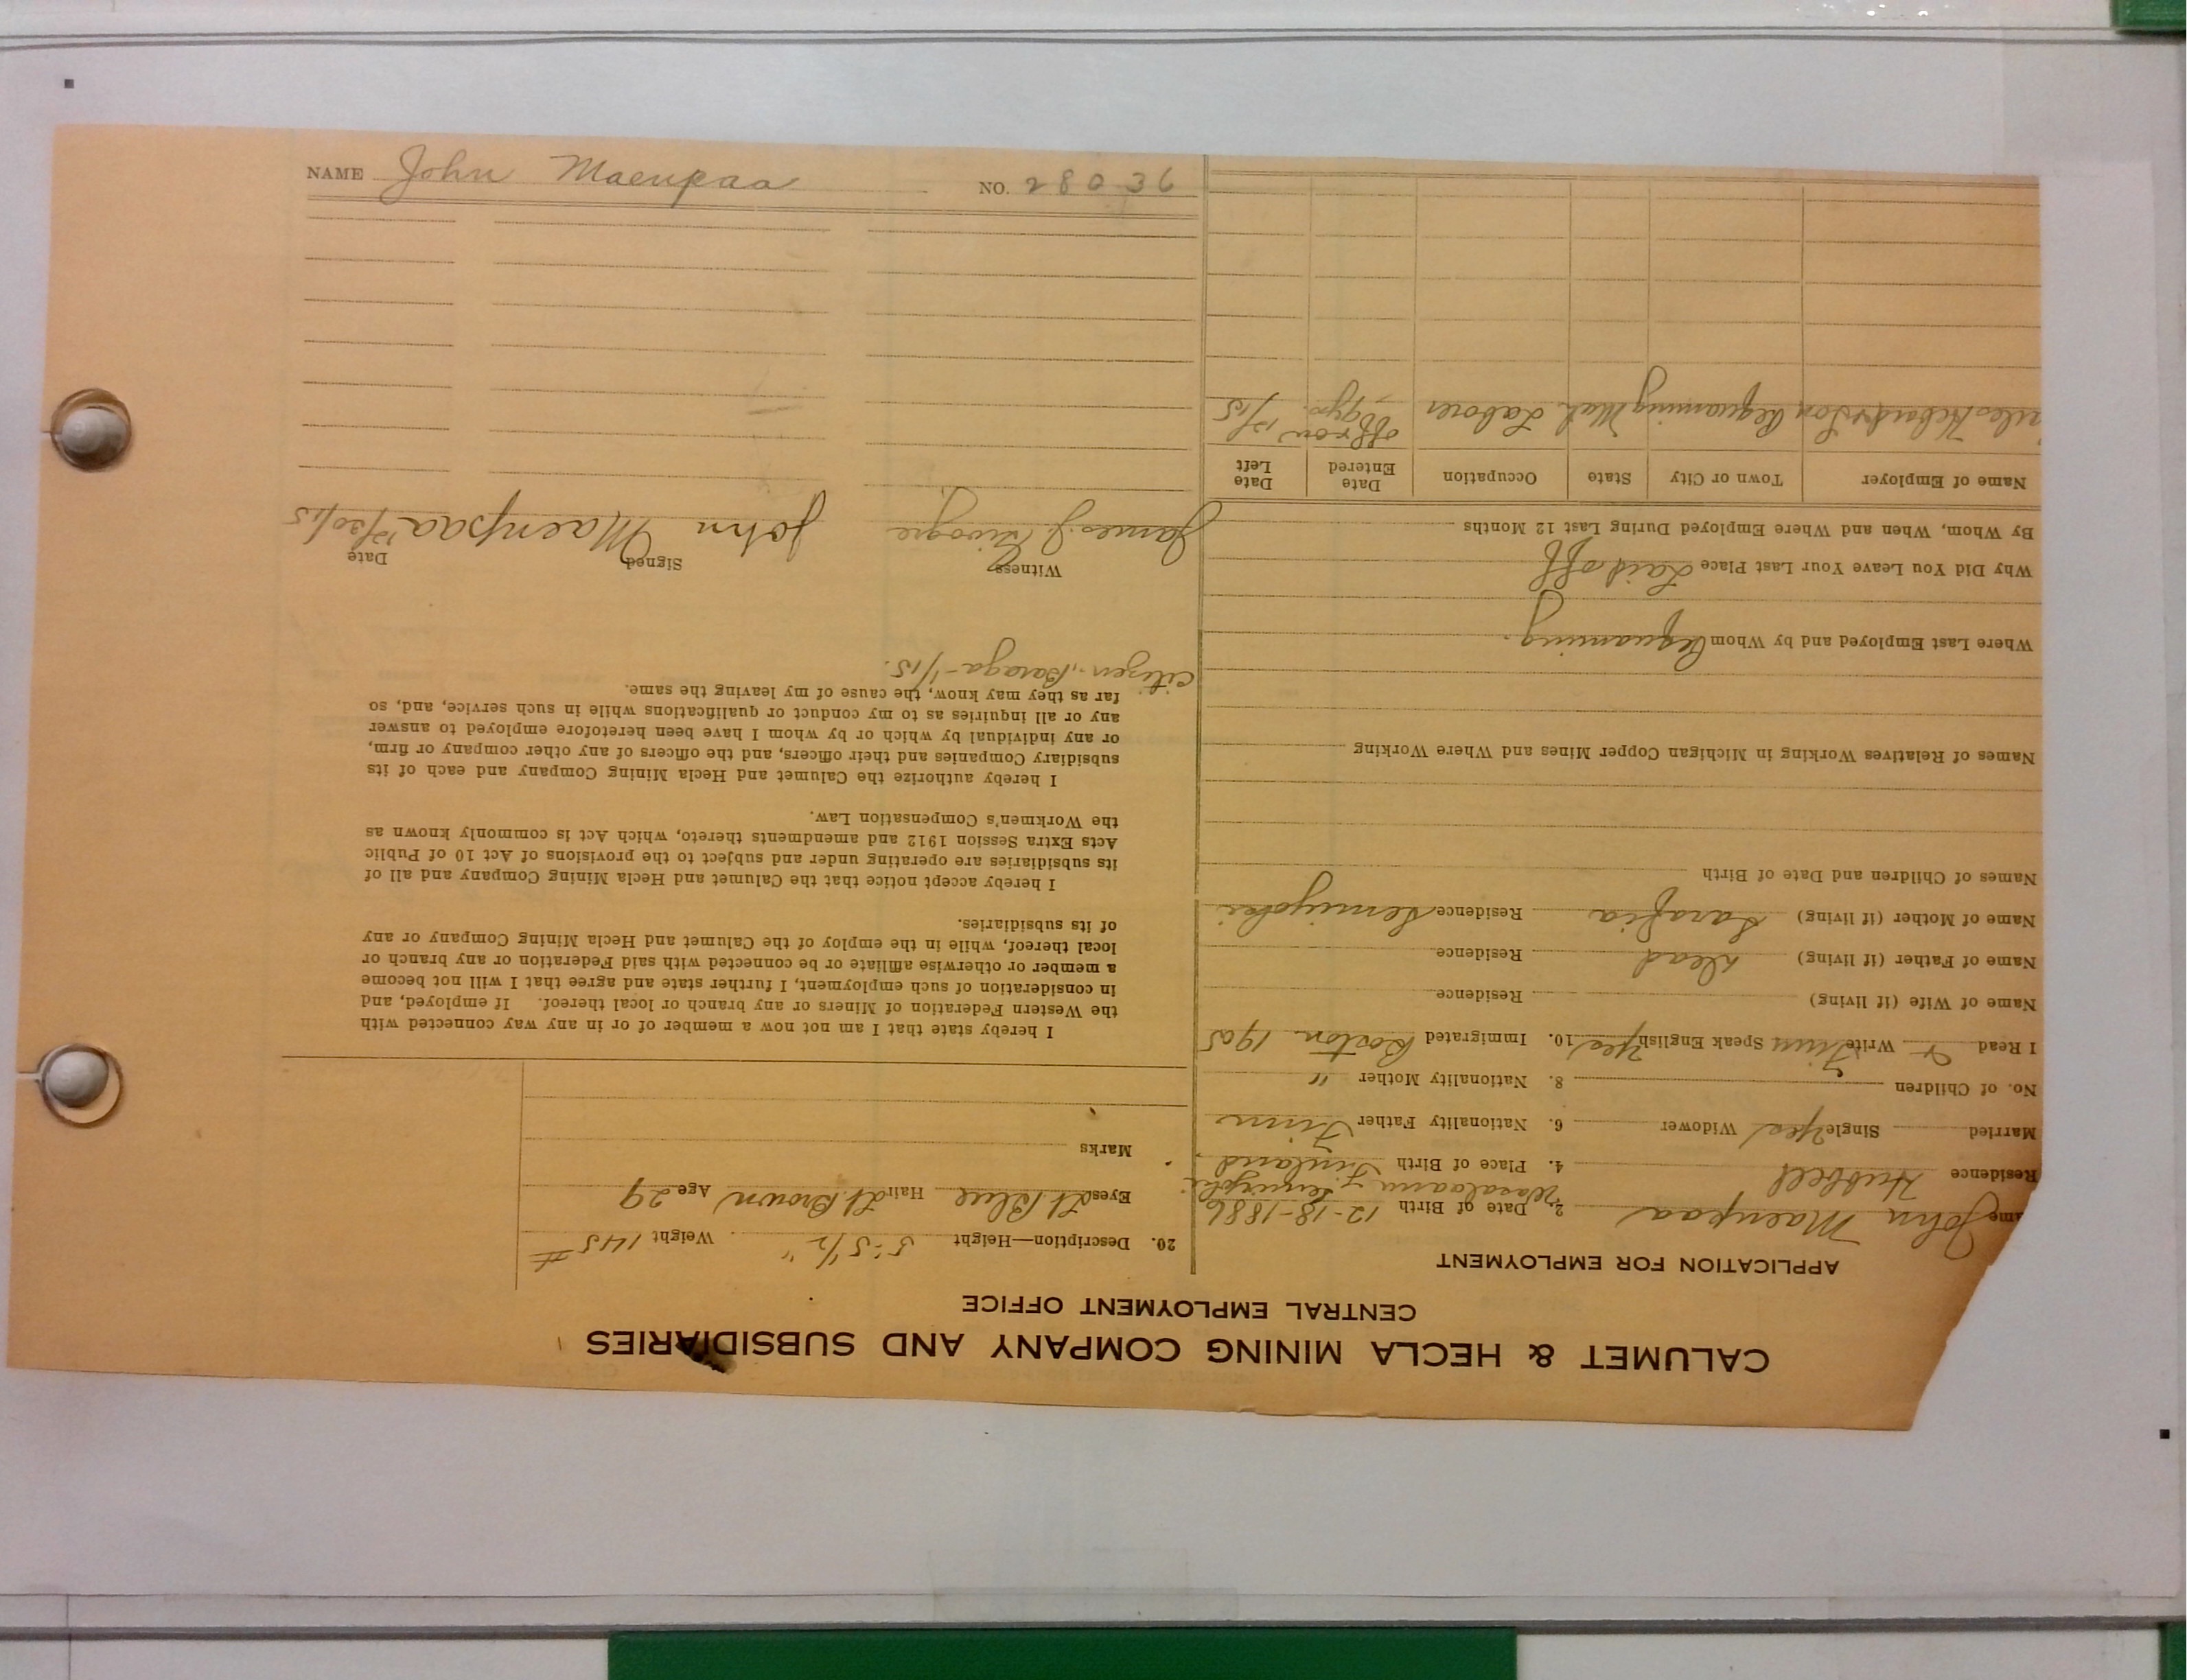 CALUMET & HECLA MINING COMPANY AND SUBSIDIARIES
CENTRAL EMPLOYMENT OFFICE
APPLICATION FOR EMPLOYMENT
ame John Maenpaa 2. Date of Birth 12-18-1886
Residence Hubbell 4. Place of Birth Finland
Married Single Yes Widower 6. Nationality Father Finn
No. of Children 8. Nationality Mother "
I Read & Write Finn Speak English Yes 10. Immigrated Boston 1905
Name of Wife (if living) Residence
Name of Father (if living) Dead Residence
Name of Mother (if living) Sarafia Residence
Names of Children and Date of Birth
Names of Relatives Working in Michigan Copper Mines and Where Working
Where Last Employed and by Whom Pequaming.
Why Did You Leave Your Last Place Laid off
By Whom, When and Where Employed During Last 12 Months
Name of Employer Town or City State Occupation Date Entered Date Left
Hebard & Son Pequaming Mich Laborer off & on 12/15
20. Description—Height 5'-5 1/2" Weight 145 #
Eyes Lt Blue Hair Lt Brown Age 29
Marks
I hereby state that I am not now a member of or in any way connected with
the Western Federation of Miners or any branch or local thereof. If employed, and
in consideration of such employment, I further state and agree that I will not become
a member or otherwise affiliate or be connected with said Federation or any branch or
local thereof, while in the employ of the Calumet and Hecla Mining Company or any
of its subsidiaries.
I hereby accept notice that the Calumet and Hecla Mining Company and all of
its subsidiaries are operating under and subject to the provisions of Act 10 of Public
Acts Extra Session 1912 and amendments thereto, which Act is commonly known as
the Workmen's Compensation Law.
I hereby authorize the Calumet and Hecla Mining Company and each of its
subsidiary Companies and their officers, and the officers of any other company or firm,
or any individual by which or by whom I have been heretofore employed to answer
any or all inquiries as to my conduct or qualifications while in such service, and, so
far as they may know, the cause of my leaving the same.
Citizen. Baraga - 1/15.
Witness Signed Date
James J. John Maenpaa 12/30/15
NAME John Maenpaa NO. 28036